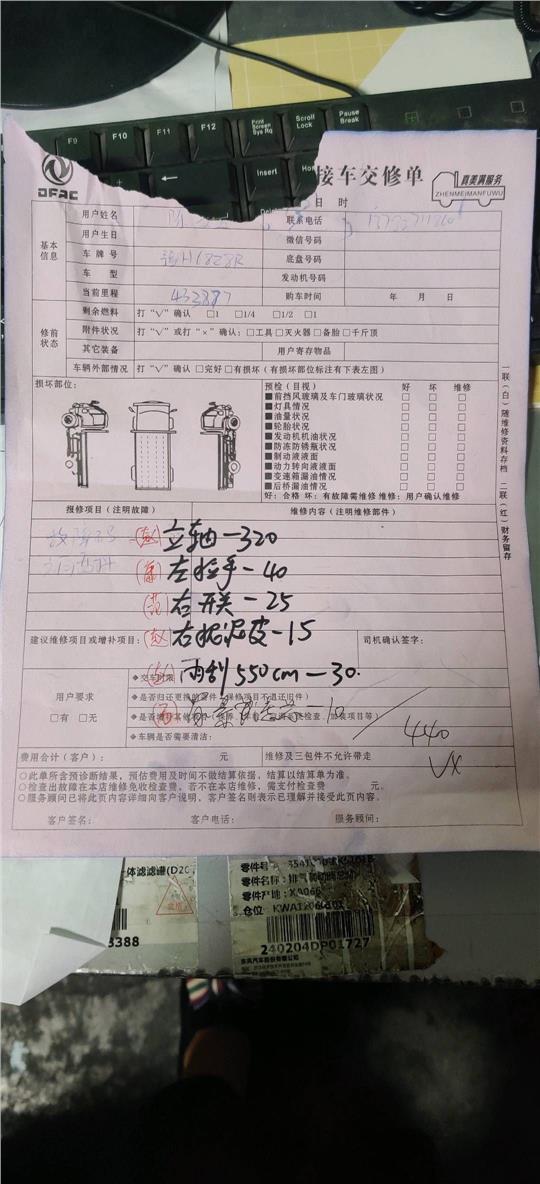 F9 F10 F11 F12 Print Screen Sys Rq Scroll Lock Pause Break
Insert
DFAC
接车交修单
真美满服务
ZHENMEIMANFUWU
日 时
基本信息
用户姓名 联系电话
用户生日 微信号码
车牌号 底盘号码
车 型 发动机号码
当前里程 432887 购车时间 年 月 日
修前状态
剩余燃料 打“√”确认 □1 □1/4 □1/2 □1
附件状况 打“√”或打“×”确认：□工具□灭火器□备胎□千斤顶
其它装备 用户寄存物品
车辆外部情况 打“√”确认□完好□有损坏(有损坏部位标注有下表左图)
损坏部位：
预检(目视) 好 坏 维修
■前挡风玻璃及车门玻璃状况 □ □ □
■灯具情况 □ □ □
■油量状况 □ □ □
■轮胎状况 □ □ □
■发动机机油状况 □ □ □
■防冻防锈瓶状况 □ □ □
■制动液液面 □ □ □
■动力转向液液面 □ □ □
■变速箱漏油情况 □ □ □
■后桥漏油情况 □ □ □
好：合格 坏：有故障需维修 维修：用户确认维修
一联(白)随维修资料存档 二联(红)财务留存
报修项目(注明故障) 维修内容(注明维修部件)
立轴-320
左拉手-40
右开关-25
建议维修项目或增补项目： 右挖泥皮-15 司机确认签字：
雨刮550cm-30
用户要求
□有 □无
◆交车时限
◆是否归还更换的零件
◆车辆是否需要清洁：
-10
440
VX
费用合计(客户)： 元 维修及三包件不允许带走
○此单所含预诊断结果，预估费用及时间不做结算依据，结算以结算单为准。
○检查出故障在本店维修免收检查费，若不在本店维修，需支付检查费 元。
○服务顾问已将此页内容详细向客户说明，客户签名则表示已理解并接受此页内容。
客户签名： 客户电话： 服务顾问：
体滤滤谱(D20
3388
零件号
零件名称：排气
零件产地：XA066
仓位：
240204DP01727
东风汽车股份有限公司